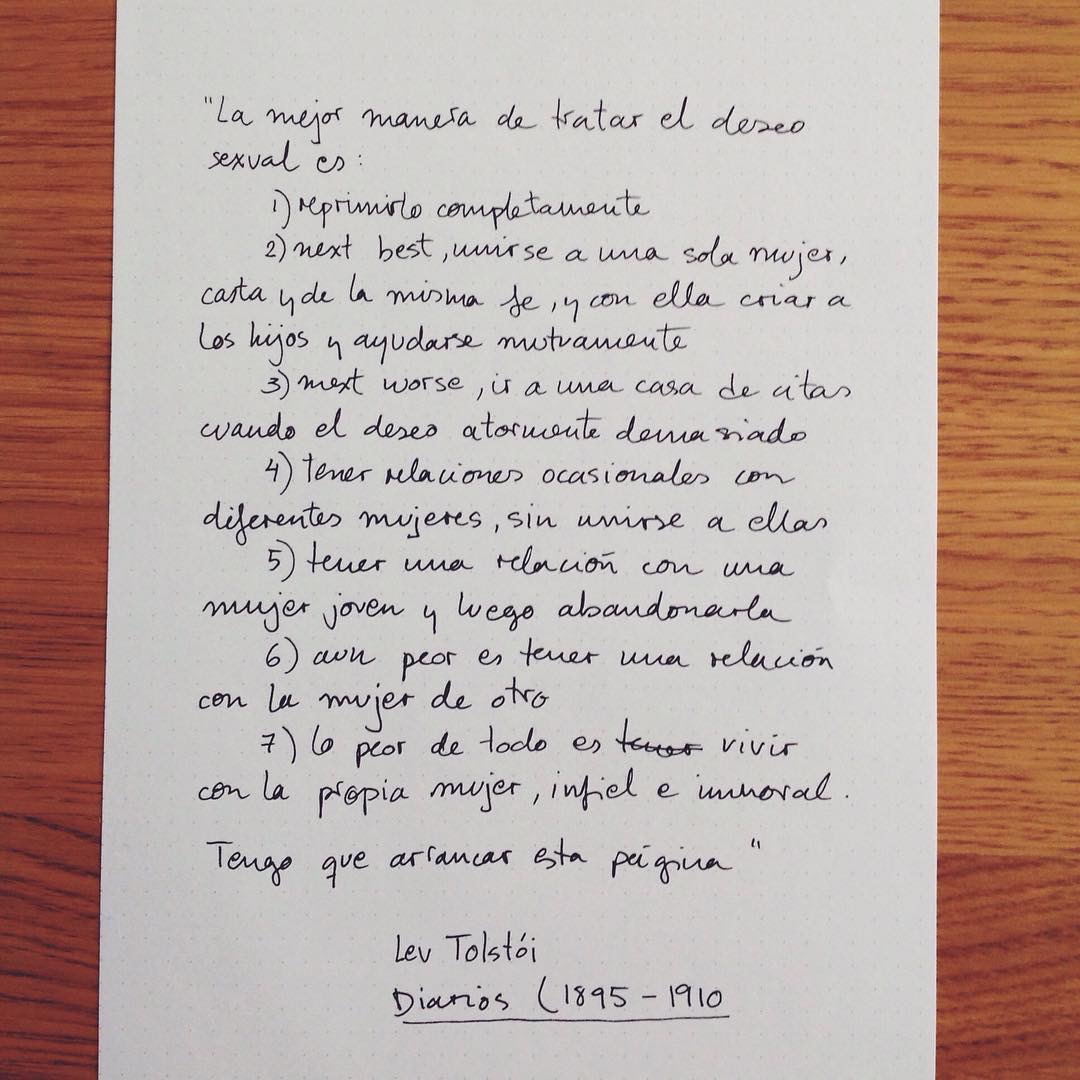 "La mejor manera de tratar el deseo
sexual es:
1) reprimirlo completamente
2) next best, unirse a una sola mujer,
casta y de la misma fe, y con ella criar a
los hijos y ayudarse mutuamente
3) next worse, ir a una casa de citas
cuando el deseo atormente demasiado
4) tener relaciones ocasionales con
diferentes mujeres, sin unirse a ellas
5) tener una relación con una
mujer joven y luego abandonarla
6) aun peor es tener una relación
con la mujer de otro
7) lo peor de todo es tener vivir
con la propia mujer, infiel e inmoral.
Tengo que arrancar esta página"
Lev Tolstói
Diarios (1895 - 1910